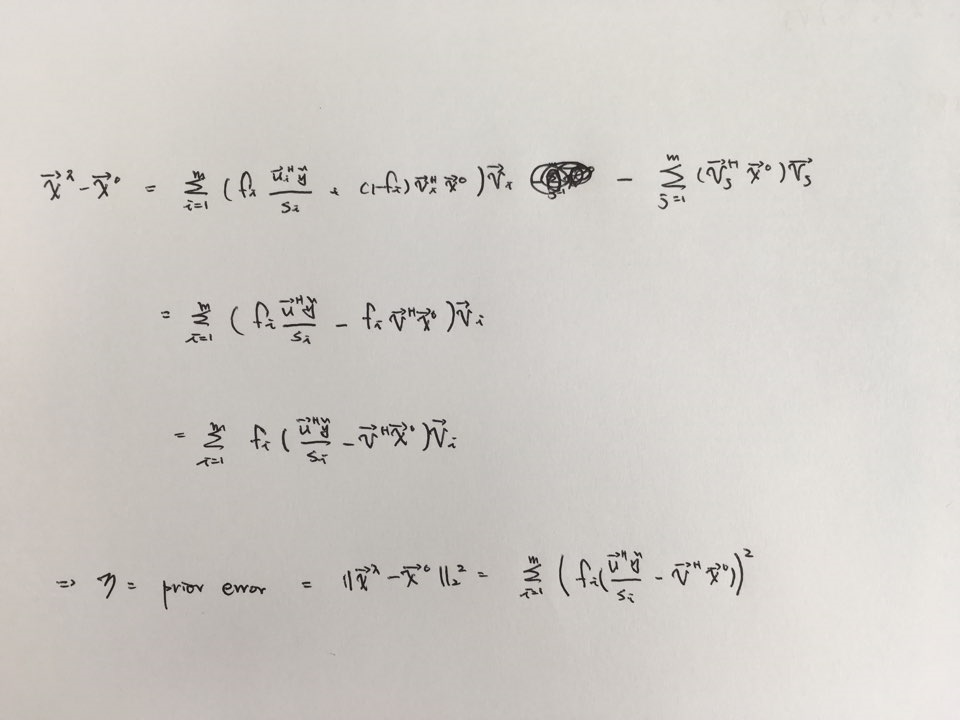 $\vec{x}^{\lambda} - \vec{x}^{0} = \sum_{i=1}^{m} (f_i \frac{\vec{u}_i^H \vec{y}}{s_i} + (1-f_i) \vec{v}_i^H \vec{x}^{0}) \vec{v}_i - \sum_{j=1}^{m} (\vec{v}_j^H \vec{x}^{0}) \vec{v}_j$
$= \sum_{i=1}^{m} (f_i \frac{\vec{u}^H \vec{y}}{s_i} - f_i \vec{v}^H \vec{x}^{0}) \vec{v}_i$
$= \sum_{i=1}^{m} f_i (\frac{\vec{u}^H \vec{y}}{s_i} - \vec{v}^H \vec{x}^{0}) \vec{v}_i$
$\Rightarrow \eta = \text{prior error} = \| \vec{x}^{\lambda} - \vec{x}^{0} \|_2^2 = \sum_{i=1}^{m} (f_i (\frac{\vec{u}^H \vec{y}}{s_i} - \vec{v}^H \vec{x}^{0}))^2$